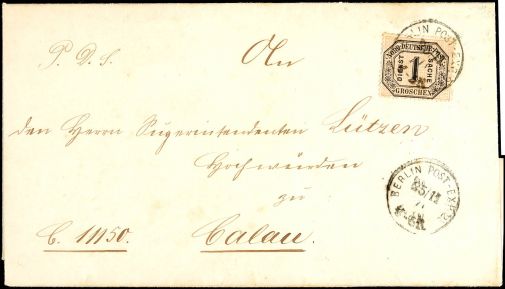 P. D. S.
An
den Herrn Superintendenten Lützen
Hochwürden
zu
C. 11150. Calau.
NORDDEUTSCHE POST
DIENST 1 SACHE
GROSCHEN
BERLIN POST-EXP.
BERLIN POST-EXP.